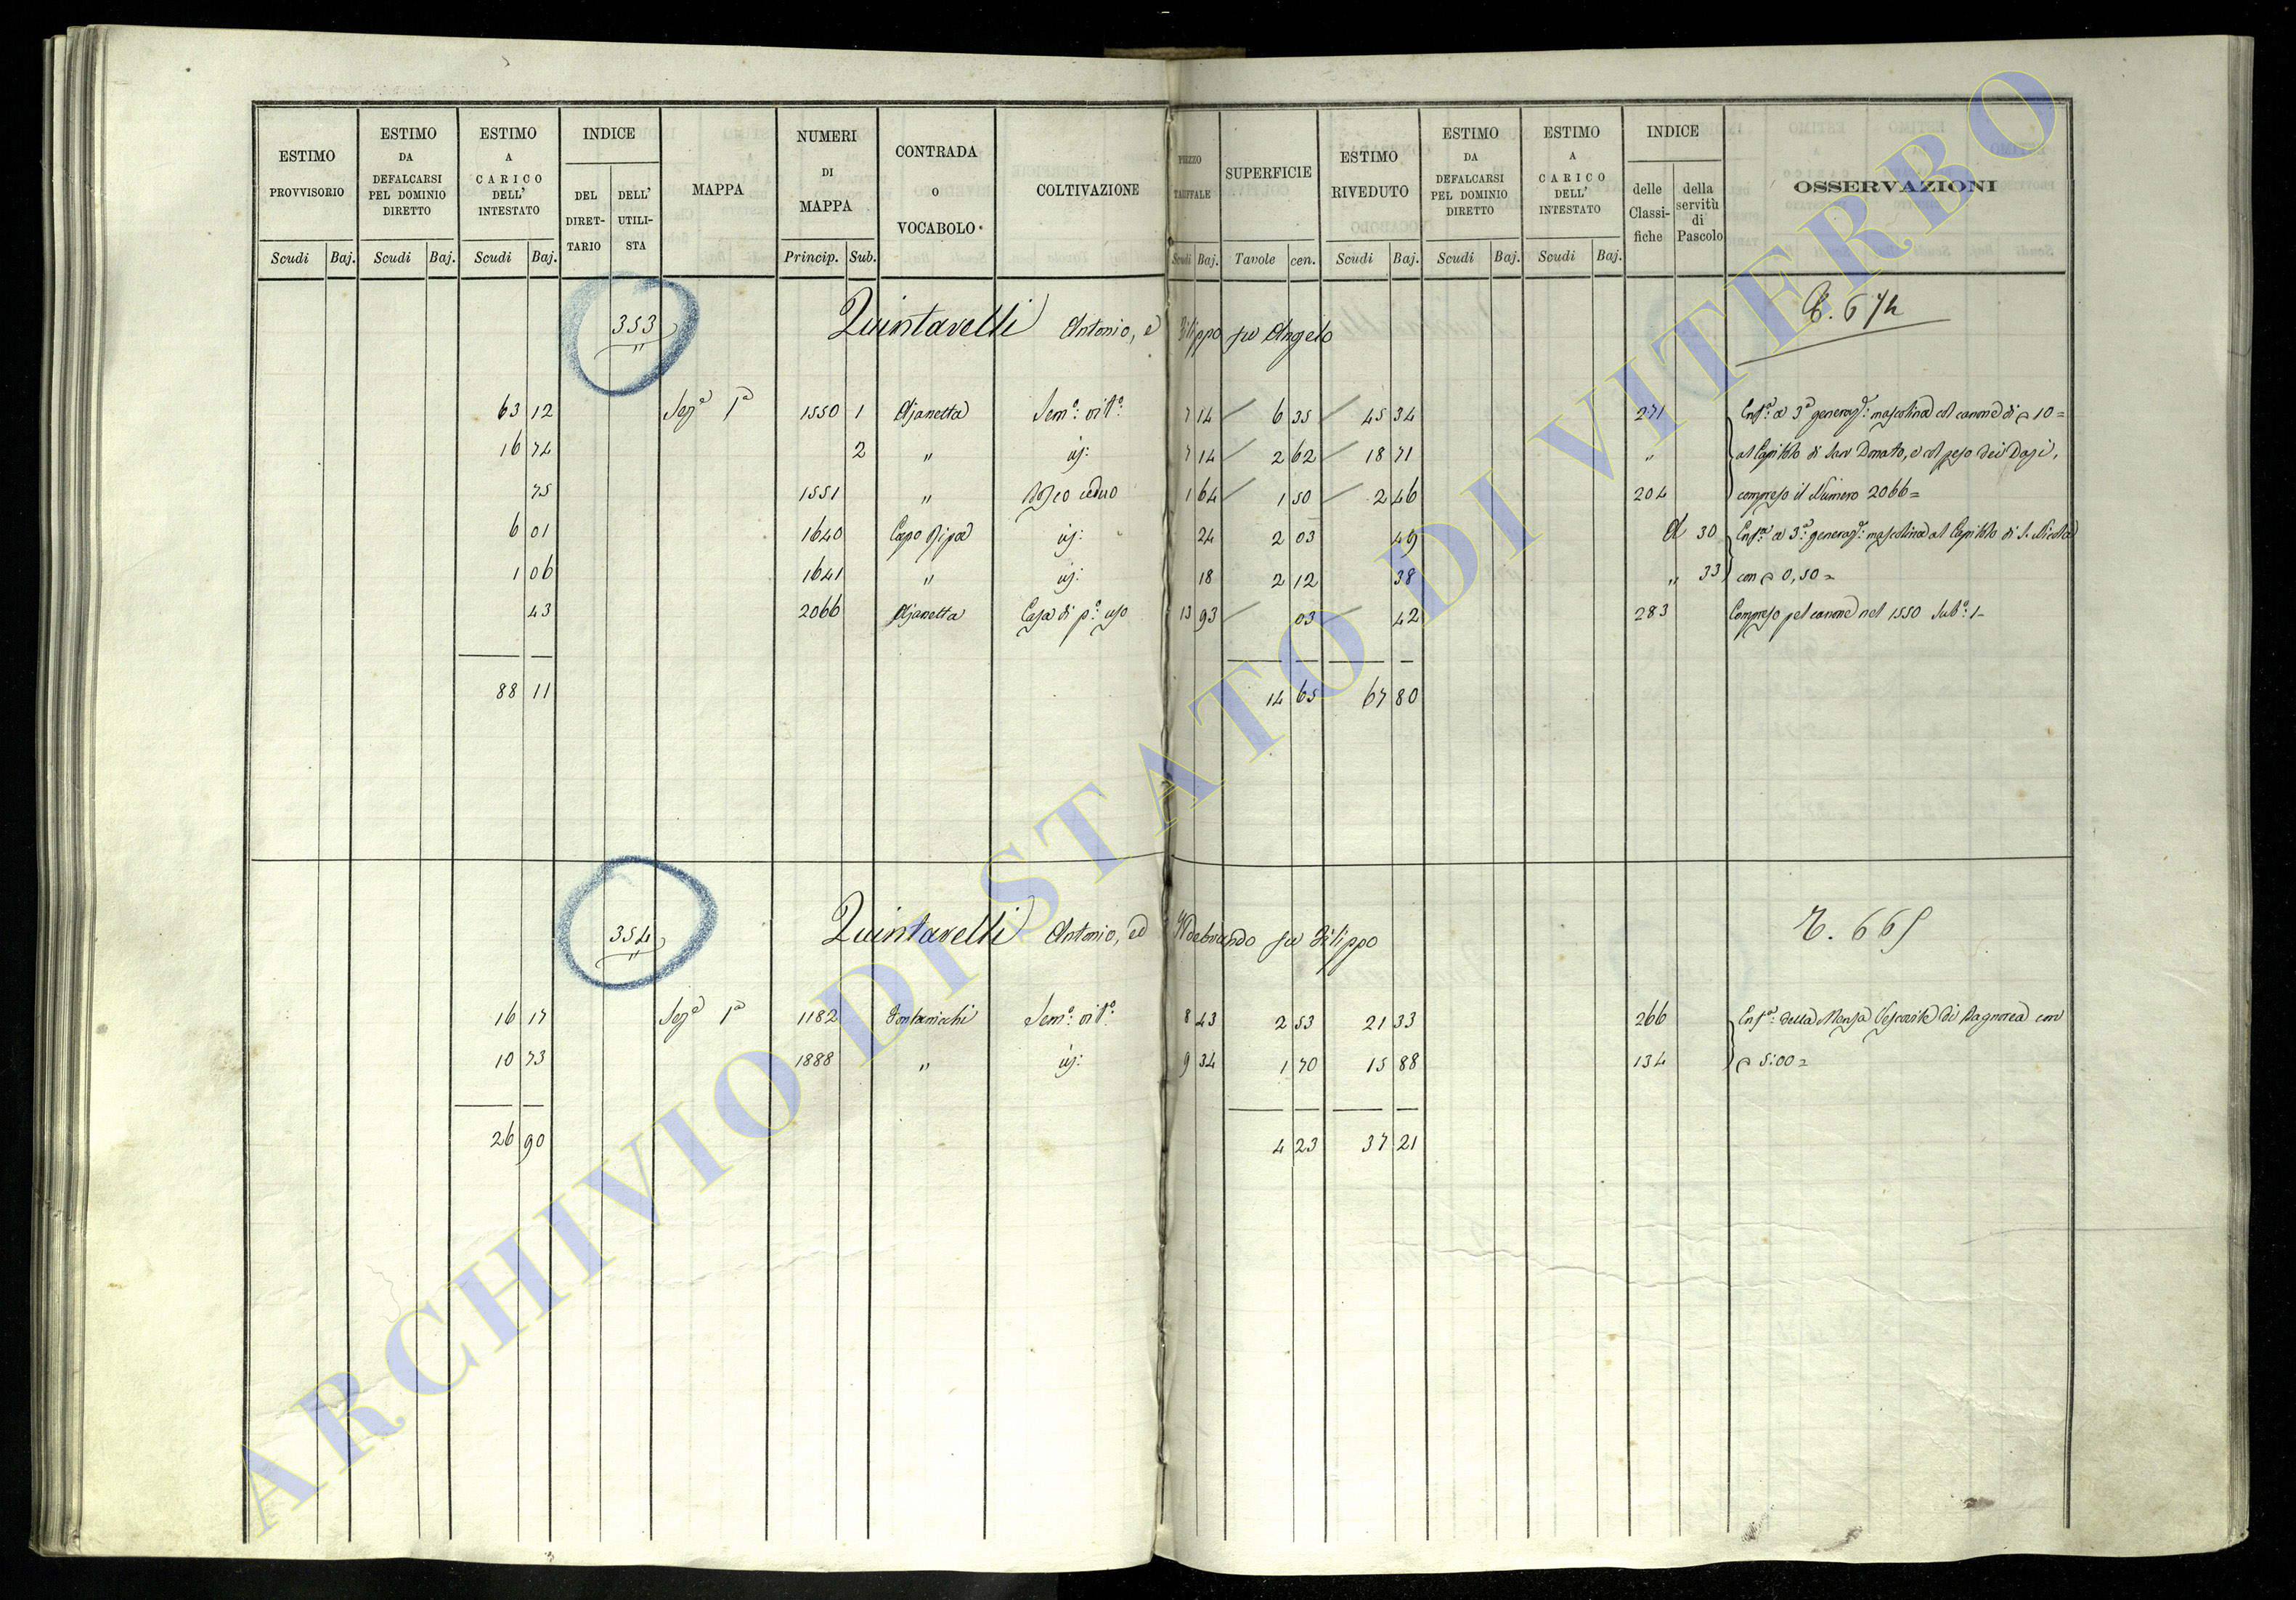 ESTIMO PROVVISORIO
ESTIMO DA DEFALCARSI PEL DOMINIO DIRETTO
ESTIMO A CARICO DELL' INTESTATO
INDICE
DEL DIRET-TARIO
DELL' UTILI-STA
MAPPA
NUMERI DI MAPPA
CONTRADA O VOCABOLO.
COLTIVAZIONE
PREZZO TARIFFALE
SUPERFICIE
ESTIMO RIVEDUTO
ESTIMO DA DEFALCARSI PEL DOMINIO DIRETTO
ESTIMO A CARICO DELL' INTESTATO
INDICE
delle Classi-fiche
della servitù di Pascolo
OSSERVAZIONI
Scudi Baj. Scudi Baj. Scudi Baj. Princip. Sub. Scudi Baj. Tavole cen. Scudi Baj. Scudi Baj. Scudi Baj.
353 Quintarelli Antonio, e Filippo fu Angelo
63 12 Seze 1a 1550 1 Sem°: vit°: 7 14 6 35 45 34 271 Enfa: a 3a generaze: mascolina col canone di 10=
16 74 2 " id: 7 14 2 62 18 71 " al Capitolo di San Donato, e col peso dei Dazi,
75 1551 " Bosco ceduo 1 64 1 50 2 46 204 compreso il Numero 2066=
6 01 1640 Capo Ripa id: 24 2 03 49 30 Enfa: a 3a generaze: mascolina al Capitolo di S. Nicola
1 06 1641 " id: 18 2 12 38 " 33 con 0,50=
43 2066 Casa di p°: uso 13 93 03 42 283 Compreso pel canone nel 1550 Sub°: 1-
88 11 14 65 67 80
354 Quintarelli Antonio, ed Ildebrando fu Filippo
16 17 Sezе 1a 1182 Sem°: vit°: 8 43 2 53 21 33 266 Enfa: della Mensa Vescovile di Bagnorea con
10 73 1888 " id: 9 34 1 70 15 88 134 5:00=
26 90 4 23 37 21
ARCHIVIO DI STATO DI VITERBO